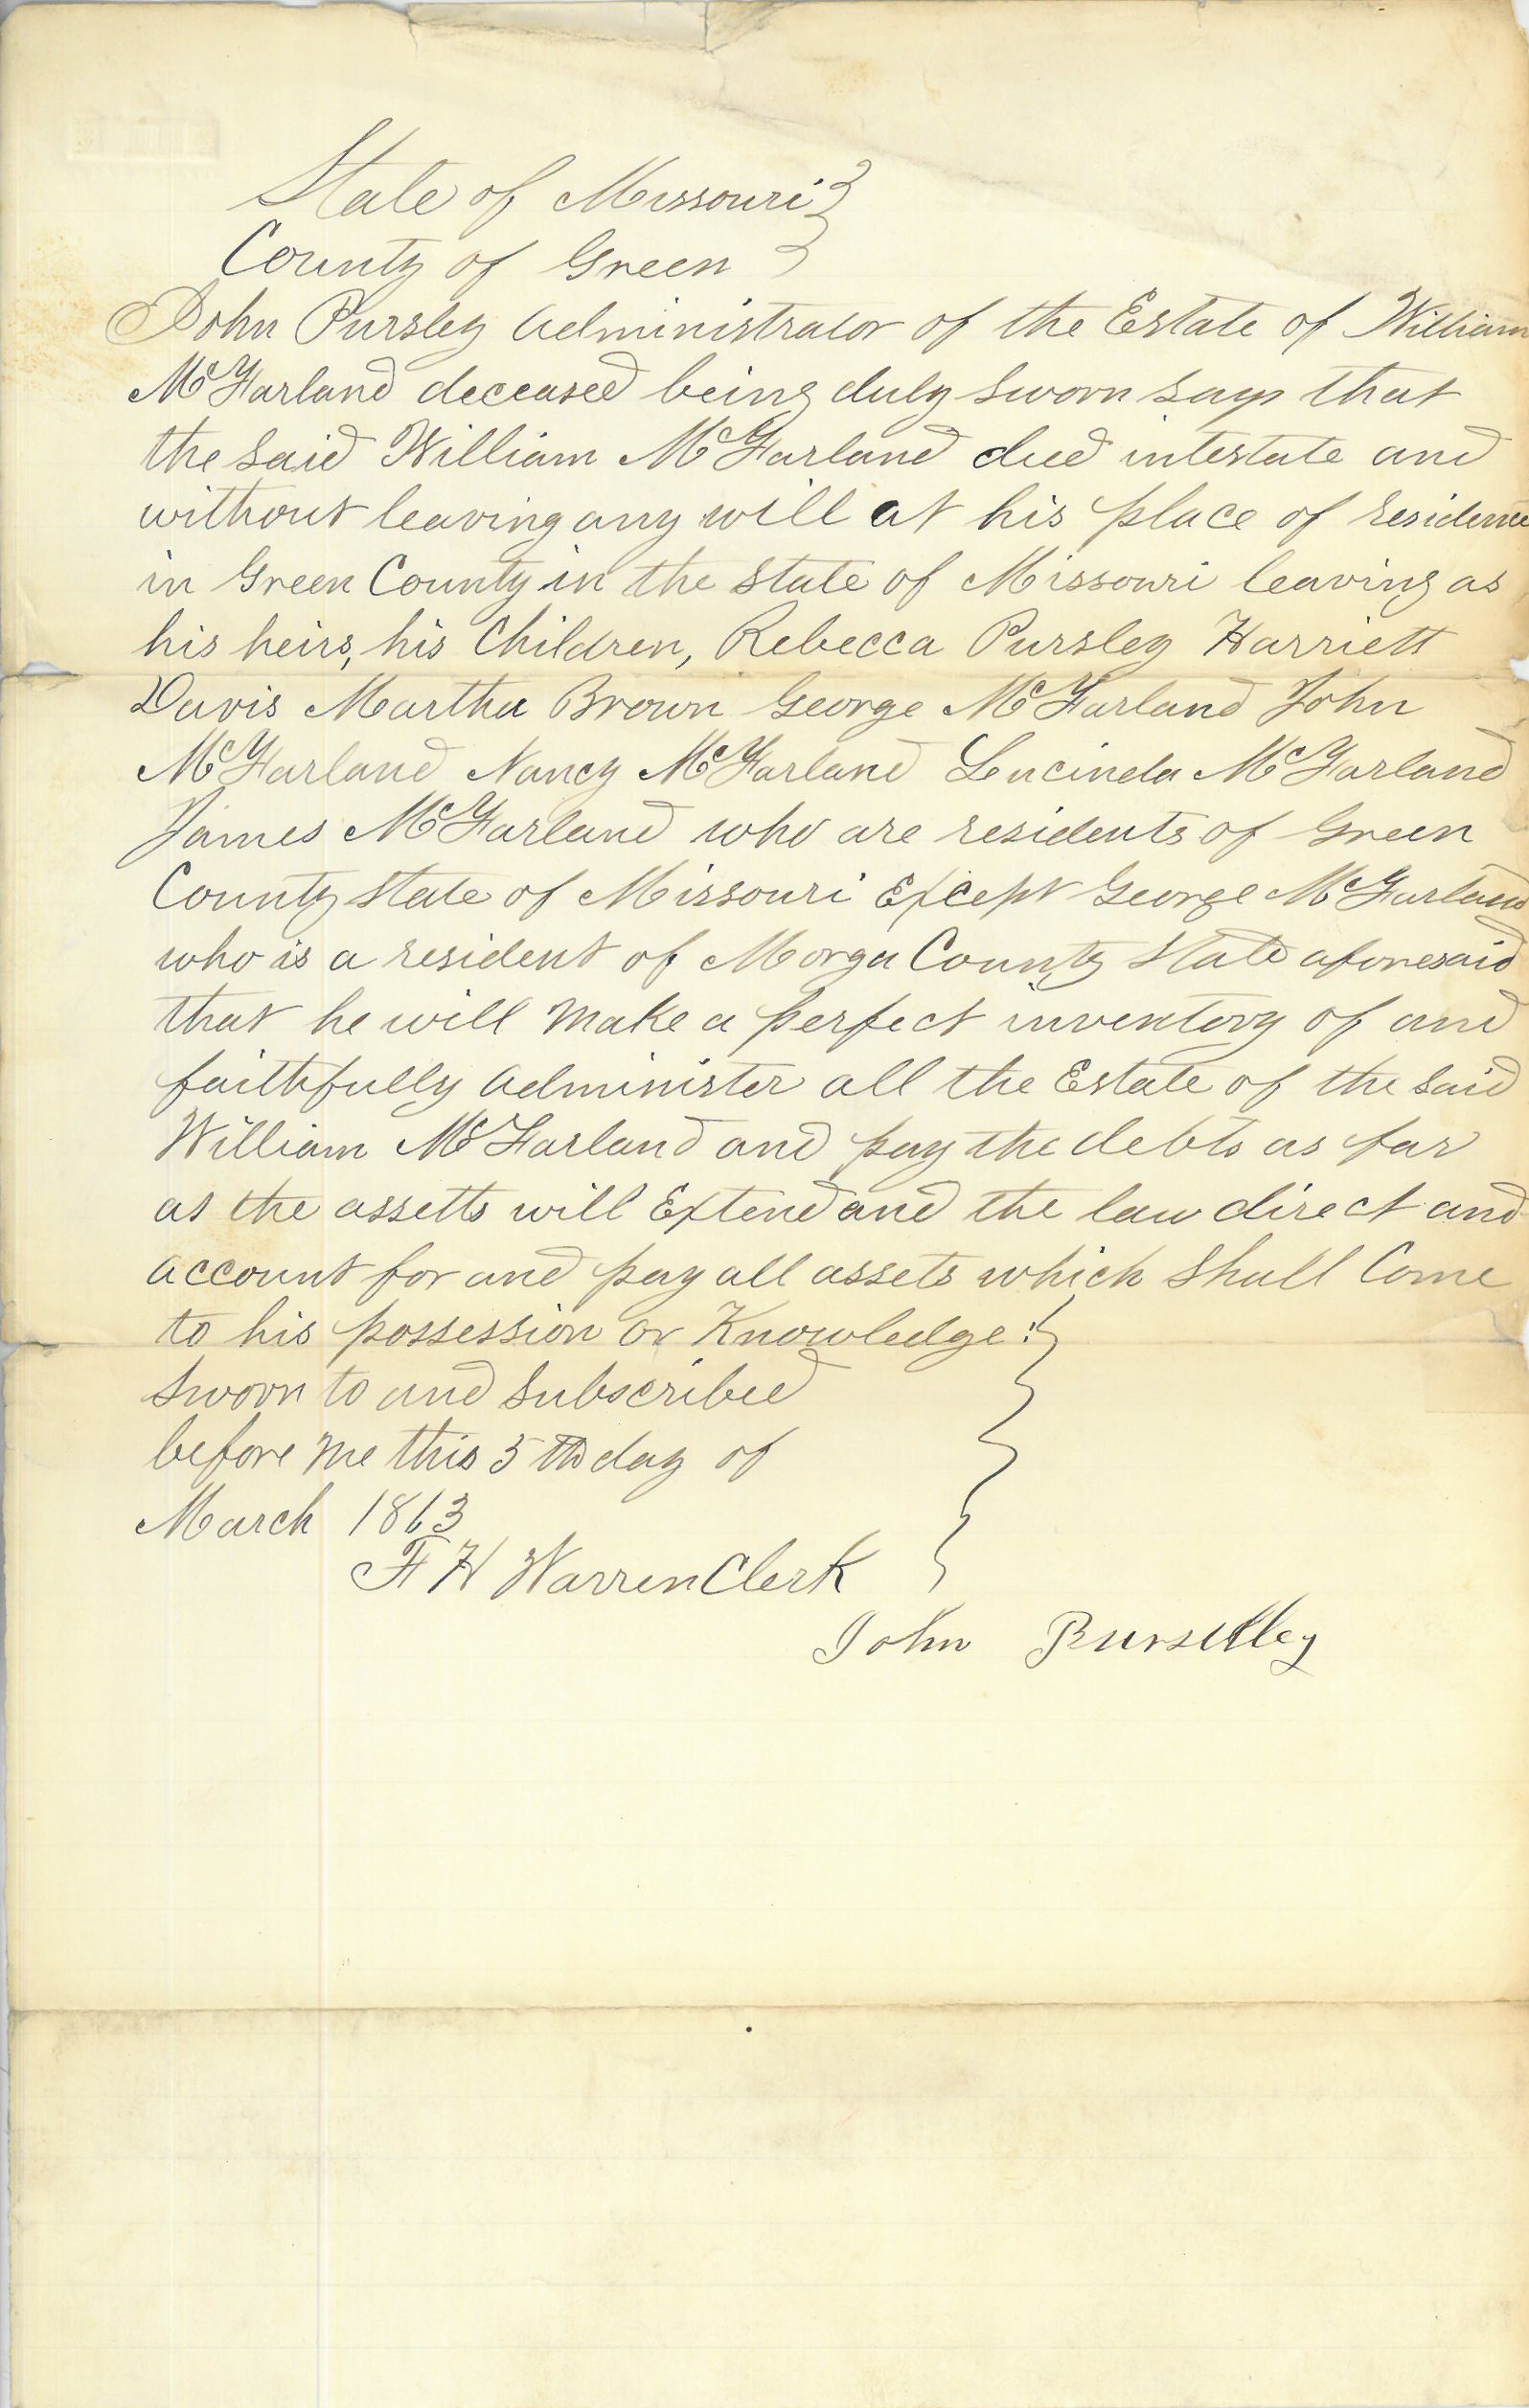 State of Missouri }
County of Green }
John Pursley Administrator of the Estate of William
McFarland deceased being duly sworn says that
the said William McFarland died intestate and
without leaving any will at his place of residence
in Green County in the State of Missouri leaving as
his heirs, his Children, Rebecca Pursley Harriett
Davis Martha Brown George McFarland John
McFarland Nancy McFarland Lucinda McFarland
James McFarland who are residents of Green
County State of Missouri Except George McFarland
who is a resident of Morga County State aforesaid
that he will make a perfect inventory of and
faithfully Administer all the Estate of the said
William McFarland and pay the debts as far
as the assetts will Extend and the law direct and
account for and pay all assets which shall Come
to his possession or Knowledge :
Sworn to and subscribed
before me this 5th day of
March 1863
F H Warren Clerk
John